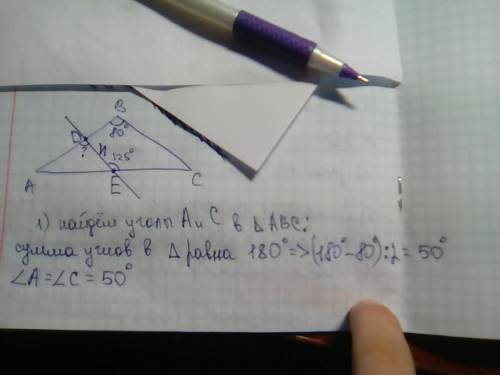 B
80°
D
и
125°
?
A
E
C
1) найдём углы A и C в △ABC:
сумма углов в △ равна 180° => (180° - 80°) : 2 = 50°
∠A = ∠C = 50°